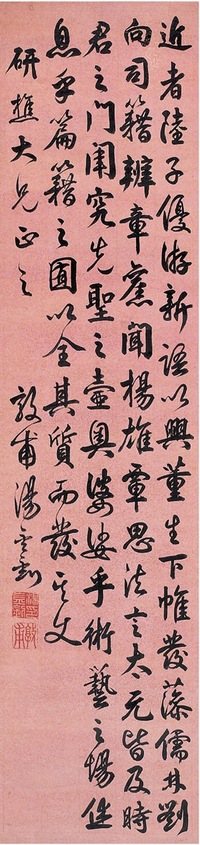 近者陸子優游新語以興董生下帷發藻儒林劉
向司籍辨章舊聞楊雄覃思法言太元皆及時
君之門闈究先聖之壼奧婆娑乎術藝之場休
息乎篇籍之囿以全其質而發其文
研樵大兄正之
敦甫湯金釗